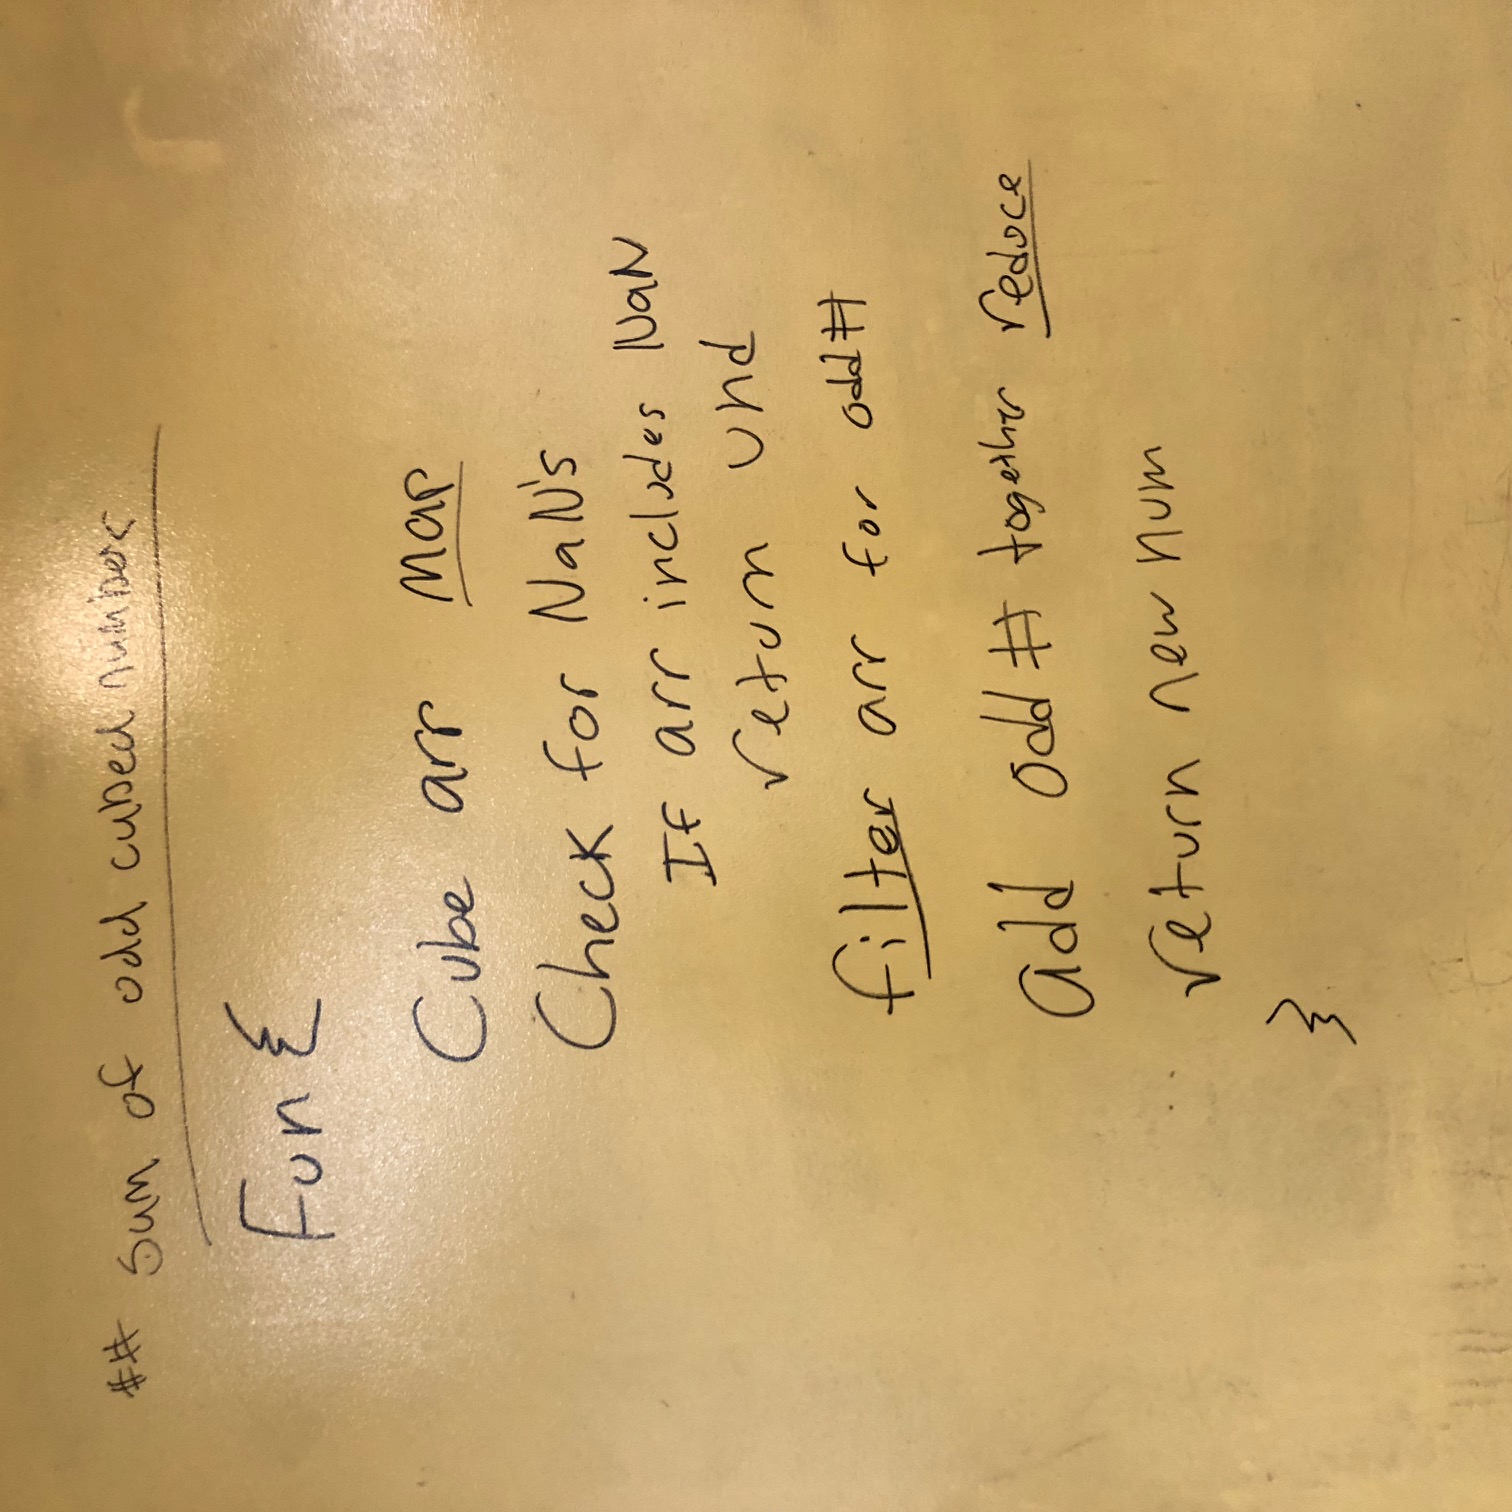 ## sum of odd cubed numbers
Fun {
Cube arr map
Check for NaN's
If arr includes NaN
return und
filter arr for odd #
add odd # together reduce
return new num
}